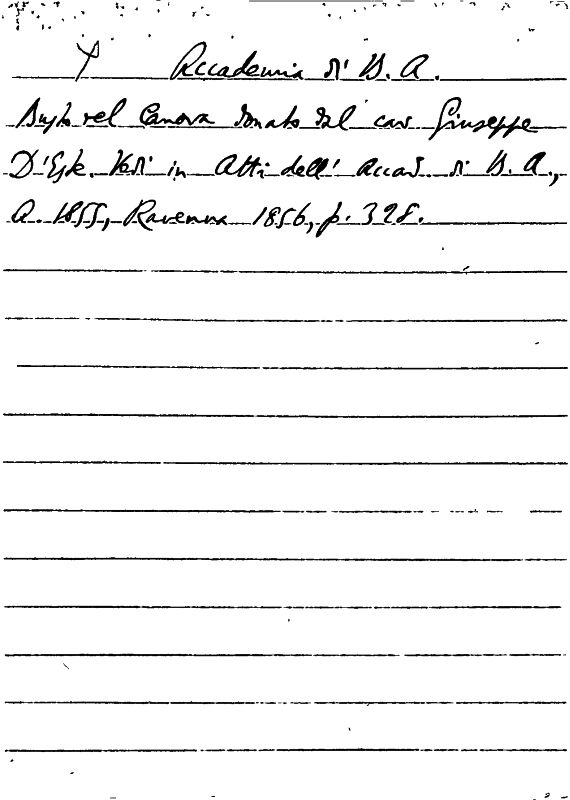 Accademia di B. A.
Busto del Canova donato dal cav Giuseppe
D'Este. Vedi in Atti dell' Accad. di B. A.,
A. 1855, Ravenna 1856, p. 328.